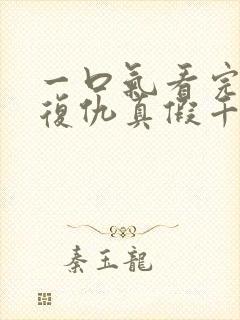 一口氣看完
復仇真假千
秦玉龍